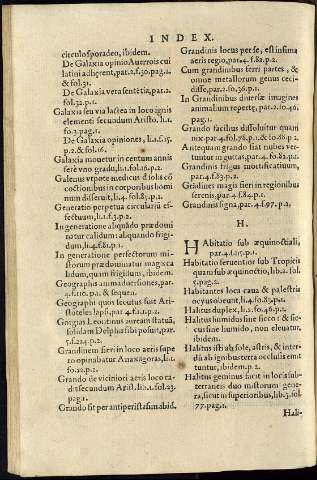 INDEX.
citeulosporadeo, ibidem.
De Galaxia opinio Auerrois cui
latini adherent, par.2.f.30.pag.1.
& fol.31.
De Galaxia vera sentētia, par.2.
fol.32.p.1.
Galaxia seu via lactea in loco ignis
elementi secundum Aristo, li.1.
fo.3.pag.1.
De Galaxia opiniones, li.1.f.15.
p.2.& fol.16.
Galaxia mouetur in centum annis
p.2.
Galenus vtpote medicus
coctionibus in corporibus homi
num disseruit, li.4. fol.85.p.1.
Generatio perpetua circularis ef-
fectuum, li.1.f.3.p.2.
In generatione aliquādo prædomi
natur calidum: aliquando frigi-
dum, li.4.f.81.p.1.
In generatione perfectorum mi-
storum prædominatur magis ca
lidum, quam frigidum, ibidem.
Geographis animaduersiones, par.
4.f.110.p.1. & sequen.
Geographi quos secutus fuit Ari-
stoteles lapsi, par.4.f.111.p.2.
Gorgias Leontinus auream statuā,
solidam Delphis sibi posuit, par.
5.f.214.p.2.
Grandinem fieri in loco aeris supe
ro opinabatur Anaxagoras, li.1.
fo.22.p.2.
Grando de viciniori aeris loco ra-
dit secundum Arist. lib.1.fol.23.
pag.1.
Grando fit per antiperistasim abid.
Grandinis locus per se, est infima
aeris regio, par.4.f.82.p.2.
Cum grandinibus ferri partes, &
omne metallorum genus ceci-
disse, par.2.fo.36.p.1.
In Grandinibus diuersæ imagines
animalium repertę, par.2.fo.46.
pag.1.
Grando facilius dissoluitur quam
nix par.4.fol.78.p.2. & fol.80.p.2.
Antequam grando fiat nubes ver-
tuntur in guttas, par.4.fo.82.p.1.
Grandinis frigus mortificatiuum,
par.4.f.83.p.2.
Grādines magis fieri in regionibus
serenis, par.4.f.84.p.1.
Grandinis signa, par.4.f.97. p.2.
H.
HAbitatio sub æquinoctiali,
par.4.f.115.p.1.
Habitatio feruentior sub Tropicis
quam sub æquinoctio, lib.2. fol.
5.pag.2.
Habitantes loca caua & palestria
ocyus obeunt, li.4.fo.89.p.1.
Halitus duplex, li.2.fo.46.p.2.
Halitus humidus sine sicco: & sic-
cus sine humido, non eleuatur,
ibidem.
Halitus isti ab sole, astris, & inter-
dū ab ignibus terra occlusis emit
tuntur, ibidem p.2.
Halitus geminus facit in locis sub-
terraneis duo mistorum gene-
ra, sicut in superioribus, lib.3.fol.
77.pag.1.
Hali-